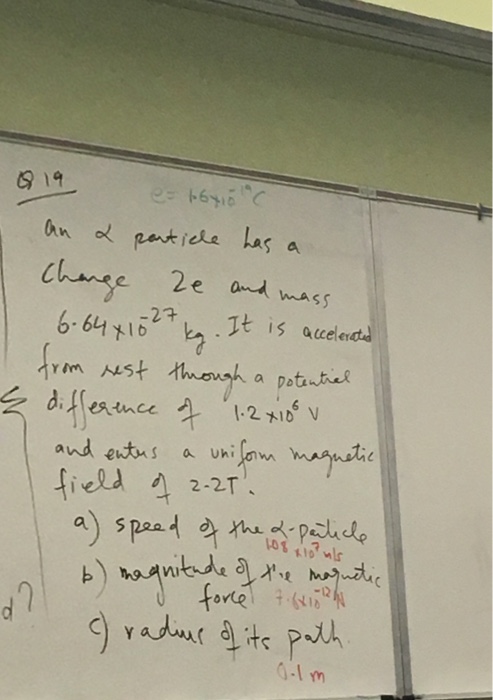 Q 19
e = 1.6x10⁻¹⁹C
an α particle has a
charge 2e and mass
6.64x10⁻²⁷ kg. It is accelerated
from rest through a potential
difference of 1.2x10⁶ V
and enters a uniform magnetic
field of 2.2T.
a) speed of the α-particle
1.08 x10⁷ m/s
b) magnitude of the magnetic
force 7.6x10⁻¹²N
c) radius of its path.
0.1 m
d?